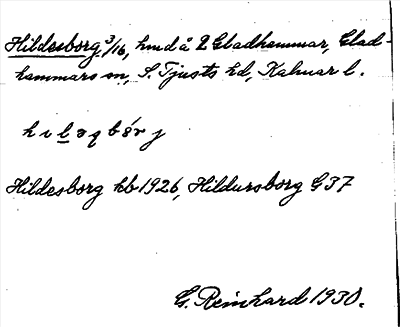 Hildesborg 3/16, hmd å 2 Gladhammar, Glad-
hammars sn, S. Tjusts hd, Kalmar l.
Hildesborg kb 1926, Hildursborg G 37
G. Reinhard 1930.